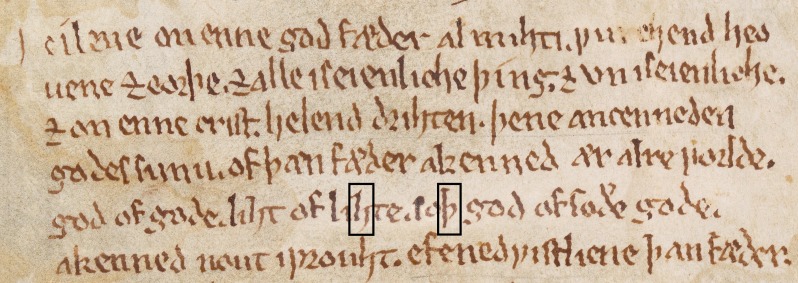 cileue on enne god fæder almihti. ƿurchend heo
uene ⁊ eorþe. ⁊ alle iseienliche þing. ⁊ vniseienliche.
⁊ on enne crist. helend drihten. þene ancenneden
godes sunu. of þan fæder akenned ær alre ƿorlde.
god of gode. liht of lihte. soþ god of soðe gode.
akenned nout iƿrouht. efenedƿistliene þan fæder.